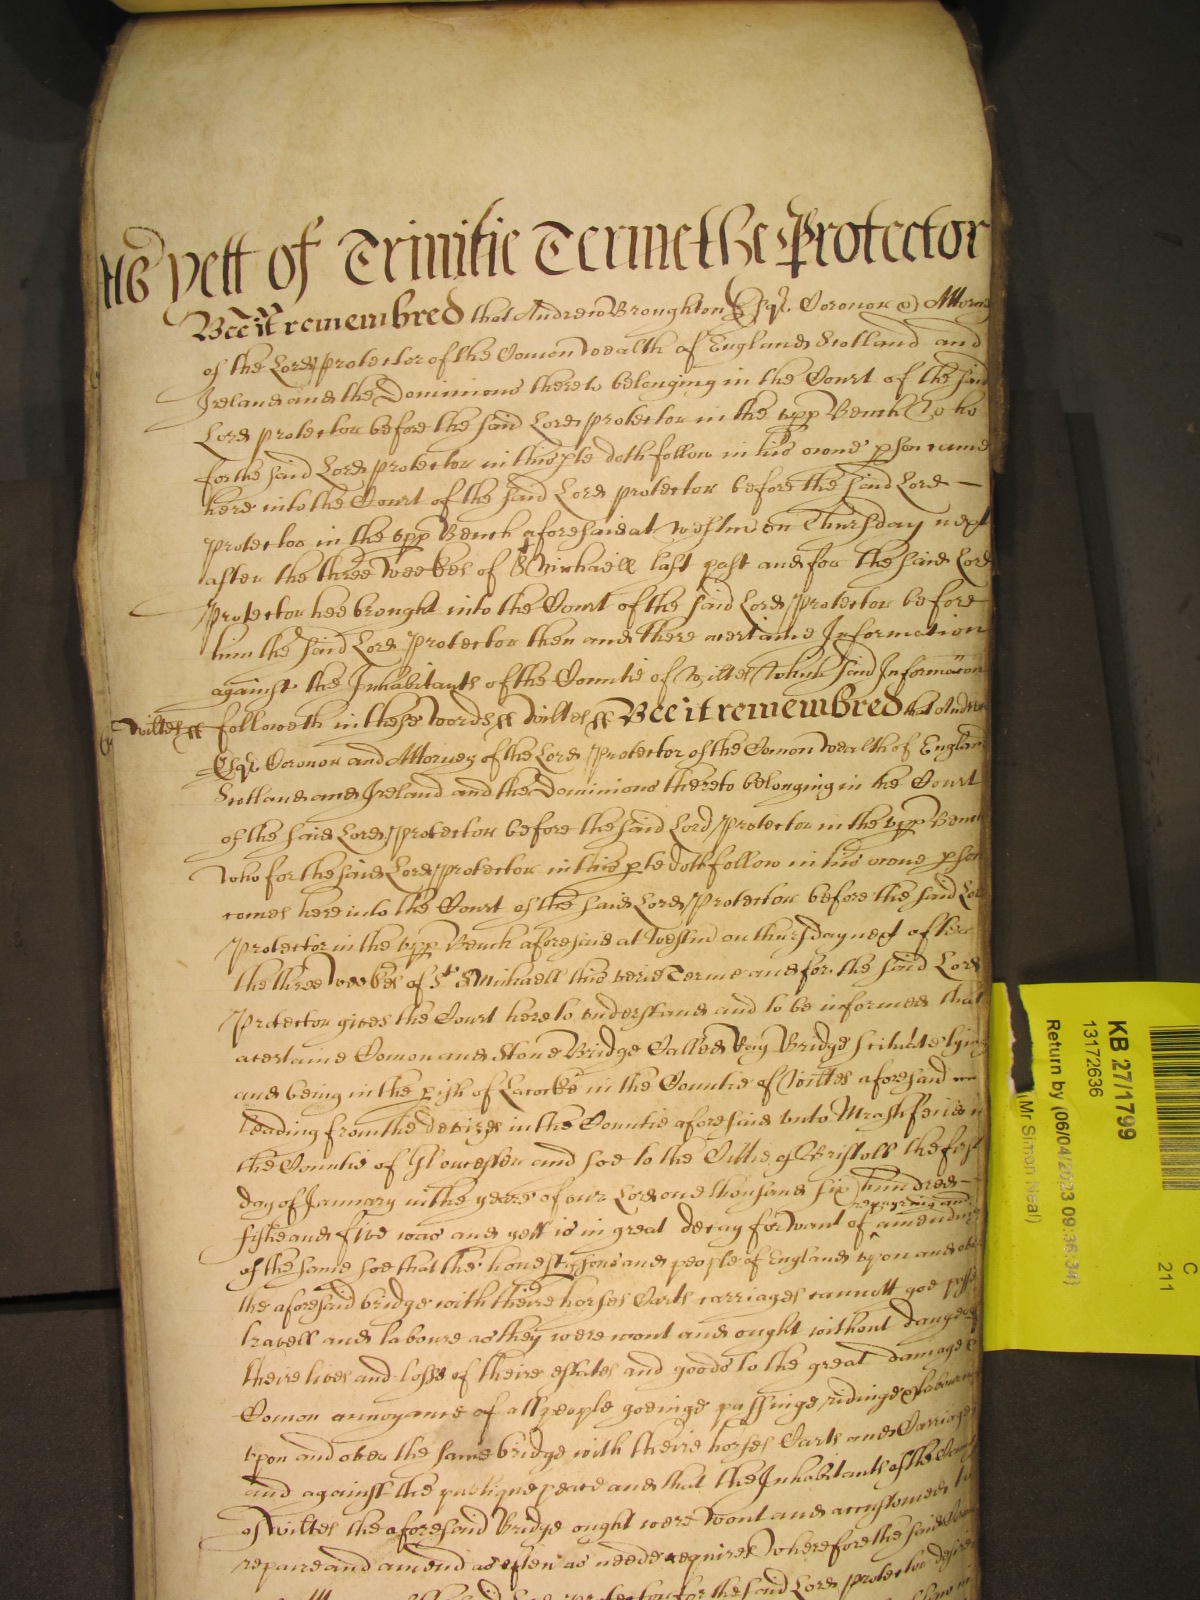 As yett of Trinitie Terme the Protector
Bee it remembred that Andrew Broughton Esqr. Coronor & Attorn
of the Lord Protector of the Comon wealth of England Scotland and
Ireland and the Dominions thereto belonging in the Court of the said
Lord Protector before the said Lord Protector in the upp Bench who
for the said Lord Protector in this pte doth follow in his owne pson came
here into the Court of the said Lord Protector before the said Lord
Protector in the upp Bench aforesaid at Westm on Thursday next
after the three weekes of St Michaell last past and for the said Lord
Protector hee brought into the Court of the said Lord Protector before
him the said Lord Protector then and there a certaine Information
against the Inhabitants of the Countie of Wiltes which said Informacon
Wiltes ss followeth in these words ss Wiltes ss Bee it remembred that Andrew
Esqr. Coronor and Attorney of the Lord Protector of the Comon wealth of England
Scotland and Ireland and the Dominions thereto belonging in the Court
of the said Lord Protector before the said Lord Protector in the upp Bench
who for the said Lord Protector in this pte doth follow in his owne pson
comes here into the Court of the said Lord Protector before the said Lord
Protector in the upp Bench aforesaid at Westm on thursday next after
the three weekes of St Michaell this verie Terme and for the said Lord
Protector gives the Court here to understand and to be informed that
a certaine Comon and Stone Bridge Called Ray Bridge scituate lying
and being in the pish of Lacocke in the Countie of Wiltes aforesaid
leading from the Devizes in the Countie aforesaid unto Marshfeild in
the Countie of Gloucester and soe to the Cittie of Bristoll the first
day of January in the yeare of our Lord one thousand six hundred
repayring and
fiftie and five was and yett is in great decay for want of amending
of the same soe that the honest psons and people of England upon and over
the aforesaid bridge with theire horses Carts carriages cannott goe passe
travell and laboure as they were wont and ought without danger of
theire lives and losse of theire estates and goods to the great damage &
Comon annoyance of all people goeinge passinge ridinge & labouring
upon and over the same bridge with theire horses Carts and Carriages
and against the publique peace and that the Inhabitants of the County
of Wiltes the aforesaid Bridge ought were wont and accustomed to
repaire and amend as often as neede required Wherefore the said
Lord Protector for the said Lord Protector desires
KB 27/1799
13172636
Return by (06/04/2023 09:36:34)
(Mr Simon Neal)
C
211